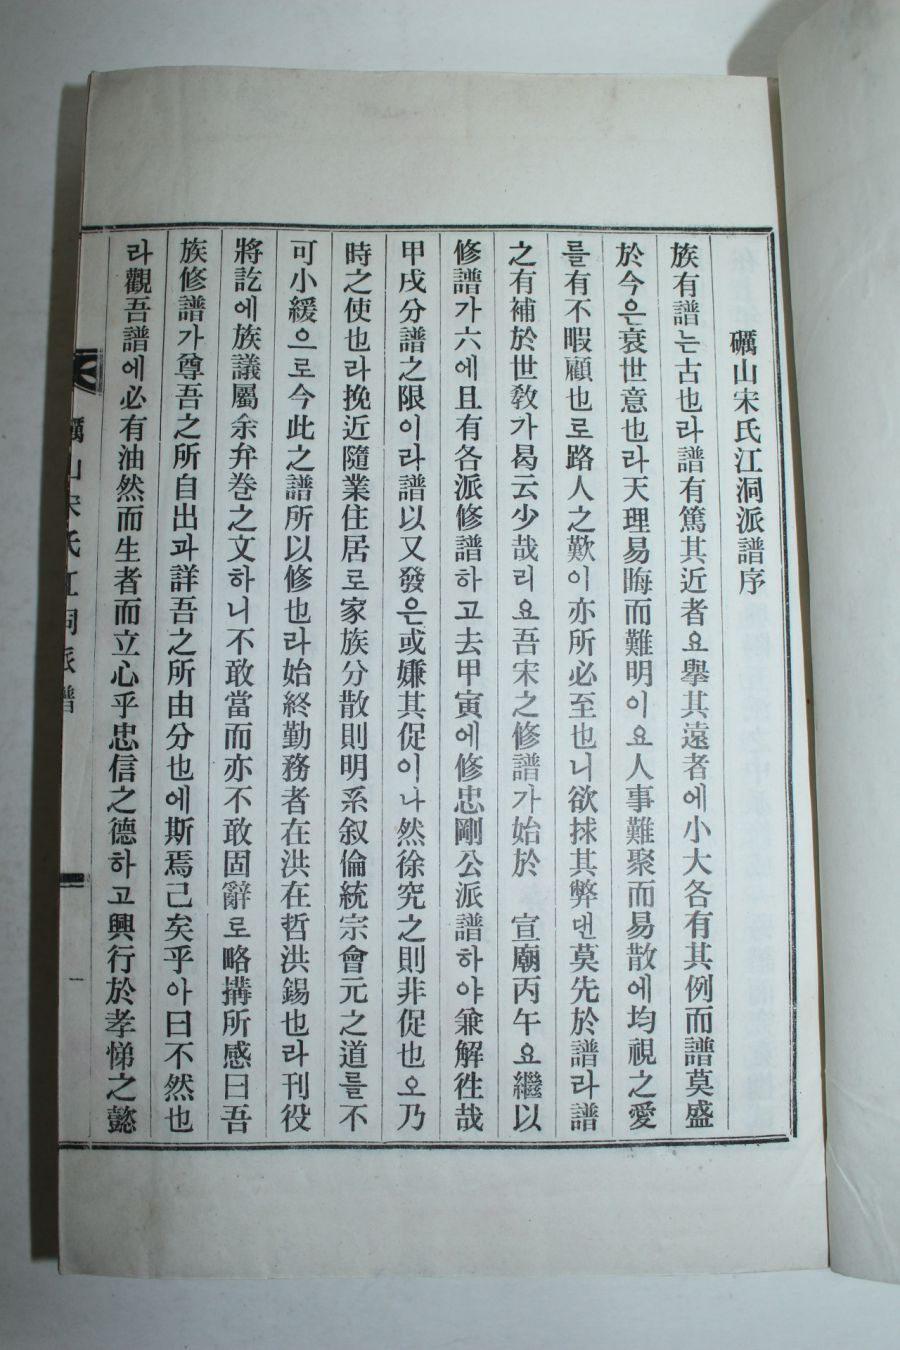 礪山宋氏江洞派譜序
族有譜는古也라譜有篤其近者요擧其遠者에小大各有其例而譜莫盛
於今은衰世意也라天理易晦而難明이요人事難聚而易散에均視之愛
를有不暇顧也로路人之歎이亦所必至也니欲捄其弊댄莫先於譜라譜
之有補於世敎가曷云少哉리요吾宋之修譜가始於 宣廟丙午요繼以
修譜가六에且有各派修譜하고去甲寅에修忠剛公派譜하야兼解徃哉
甲戌分譜之限이라譜以又發은或嫌其促이나然徐究之則非促也오乃
時之使也라挽近隨業住居로家族分散則明系叙倫統宗會元之道를不
可小緩으로今此之譜所以修也라始終勤務者在洪在哲洪錫也라刊役
將訖에族議屬余弁卷之文하니不敢當而亦不敢固辭로略搆所感曰吾
族修譜가尊吾之所自出과詳吾之所由分也에斯焉己矣乎아曰不然也
라觀吾譜에必有油然而生者而立心乎忠信之德하고興行於孝悌之懿
礪山宋氏江洞派譜
一